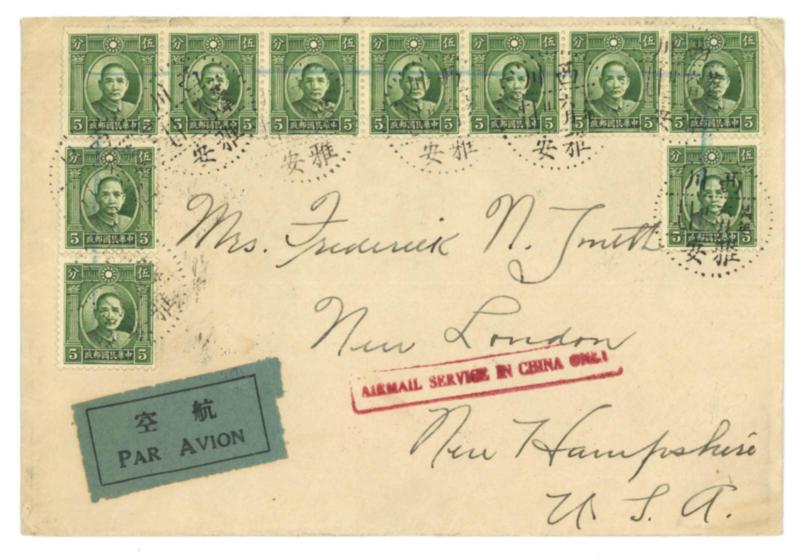 伍分
5 中華民國郵政 5
伍分
5 中華民國郵政 5
伍分
5 中華民國郵政 5
伍分
5 中華民國郵政 5
伍分
5 中華民國郵政 5
伍分
5 中華民國郵政 5
伍分
5 中華民國郵政 5
伍分
5 中華民國郵政 5
伍分
5 中華民國郵政 5
伍分
5 中華民國郵政 5
雅安
雅安
雅安
雅安
西川
雅安
Mrs. Frederick N. Smith
New London
AIRMAIL SERVICE IN CHINA ONLY
New Hampshire
U. S. A.
航空
PAR AVION